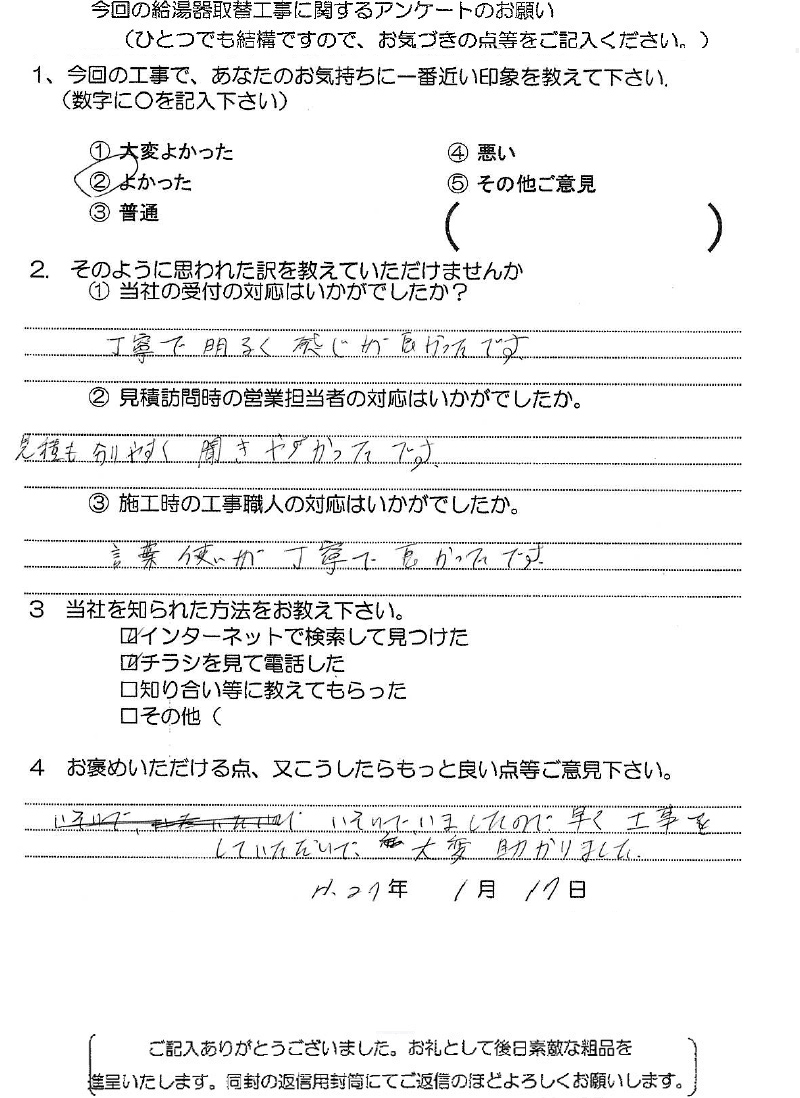 今回の給湯器取替工事に関するアンケートのお願い
（ひとつでも結構ですので、お気づきの点等をご記入ください。）
1、今回の工事で、あなたのお気持ちに一番近い印象を教えて下さい.
（数字に〇を記入下さい）
① 大変よかった ④ 悪い
② よかった ⑤ その他ご意見
③ 普通 （ ）
2. そのように思われた訳を教えていただけませんか
① 当社の受付の対応はいかがでしたか？
丁寧で明るく感じが良かったです
② 見積訪問時の営業担当者の対応はいかがでしたか。
見積も分りやすく聞きやすかったです。
③ 施工時の工事職人の対応はいかがでしたか。
言葉使いが丁寧で良かったです
3 当社を知られた方法をお教え下さい。
☑インターネットで検索して見つけた
☑チラシを見て電話した
□知り合い等に教えてもらった
□その他（
4 お褒めいただける点、又こうしたらもっと良い点等ご意見下さい。
いそいでいましたので早く工事を
していただいて、大変助かりました.
H.27年 1月 17日
ご記入ありがとうございました。お礼として後日素敵な粗品を
進呈いたします。同封の返信用封筒にてご返信のほどよろしくお願いします。